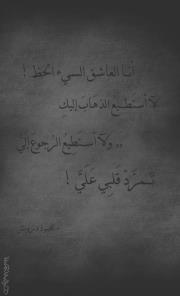 أنا العاشق السيء الحظ !
لا أستطيع الذهاب إليكِ
,, ولا أستطيعُ الرجوعَ إلي
تمرَّدَ قلبي عليَّ !
- محمود درويش